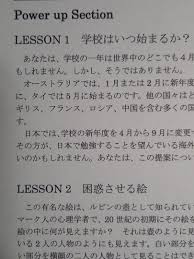 Power up Section
LESSON 1 学校はいつ始まるか？
あなたは、学校の一年は世界中のどこでも4月
もしれません。しかし、そうではありません。
オーストラリアでは、1月または2月に新年度
タイでは、5月または6月に始まるのです。他の国々はと
ギリス、フランス、ロシア、中国を含む多くの国
す。
日本では、学校の新年度を4月から9月に変
方が、日本で勉強することを望んでいる海外
いのかもしれません。あなたは、この提案につい
LESSON 2 困惑させる絵
この有名な絵は、ルビンの壺として知られてい
マーク人の心理学者で、20世紀の初期にその絵を
絵の中に何が見えますか？ それは白い
いる2人の人物のようにも見えます。白い部分
いを横顔の二人の人物として見ることが